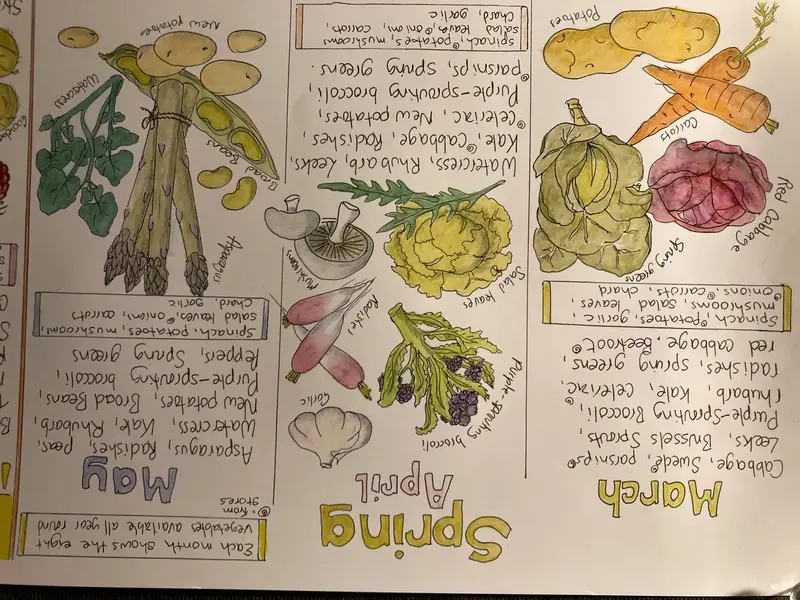 Spring
March
Cabbage, Swede◎, parsnips◎
Leeks, Brussels Sprouts
Purple-Sprouting Broccoli,
rhubarb, Kale, Celeriac◎,
radishes, spring greens,
red cabbage, Beetroot◎
Spinach, ◎potatoes, garlic,
mushrooms, salad leaves,
◎onions, ◎carrots, chard
Spring greens
Red Cabbage
Carrots
Potatoes
April
Purple-sprouting broccoli
Garlic
Radishes
Salad leaves
Mushrooms
Watercress, Rhubarb, Leeks,
Kale, ◎Cabbage, Radishes,
◎Celeriac, New potatoes,
Purple-sprouting broccoli,
◎parsnips, Spring greens.
spinach, ◎potatoes, mushrooms
salad leaves, ◎onion, carrots,
chard, garlic
Each month shows the eight
vegetables available all year round
◎ = from
stores
May
Asparagus, Radishes, peas,
Watercress, Kale, Rhubarb,
New potatoes, Broad Beans,
Purple-sprouting broccoli,
Peppers, Spring greens
Spinach, potatoes, mushroom,
salad leaves ◎onion, carrots
Chard, garlic
Asparagus
Broad Beans
Watercress
New potatoes